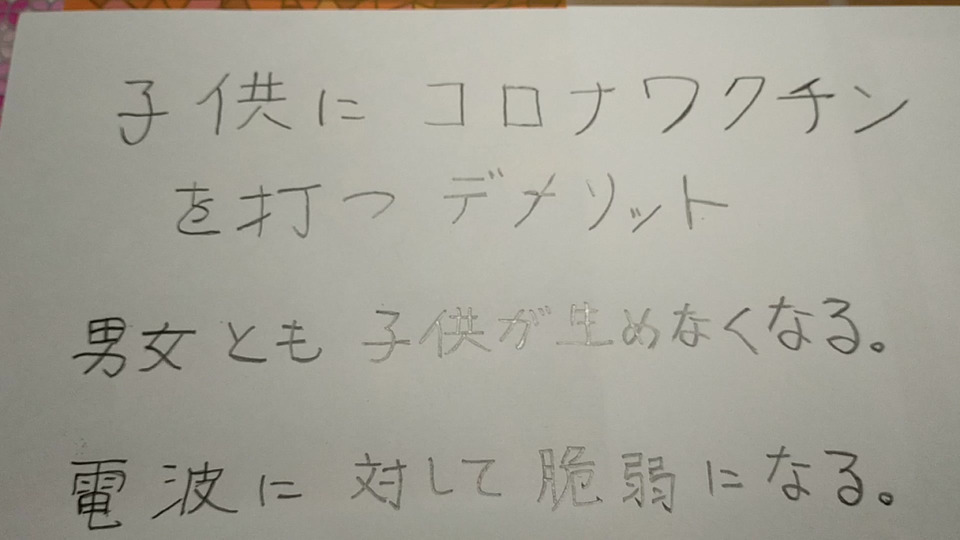 子供にコロナワクチン
を打つデメリット
男女とも子供が生めなくなる。
電波に対して脆弱になる。